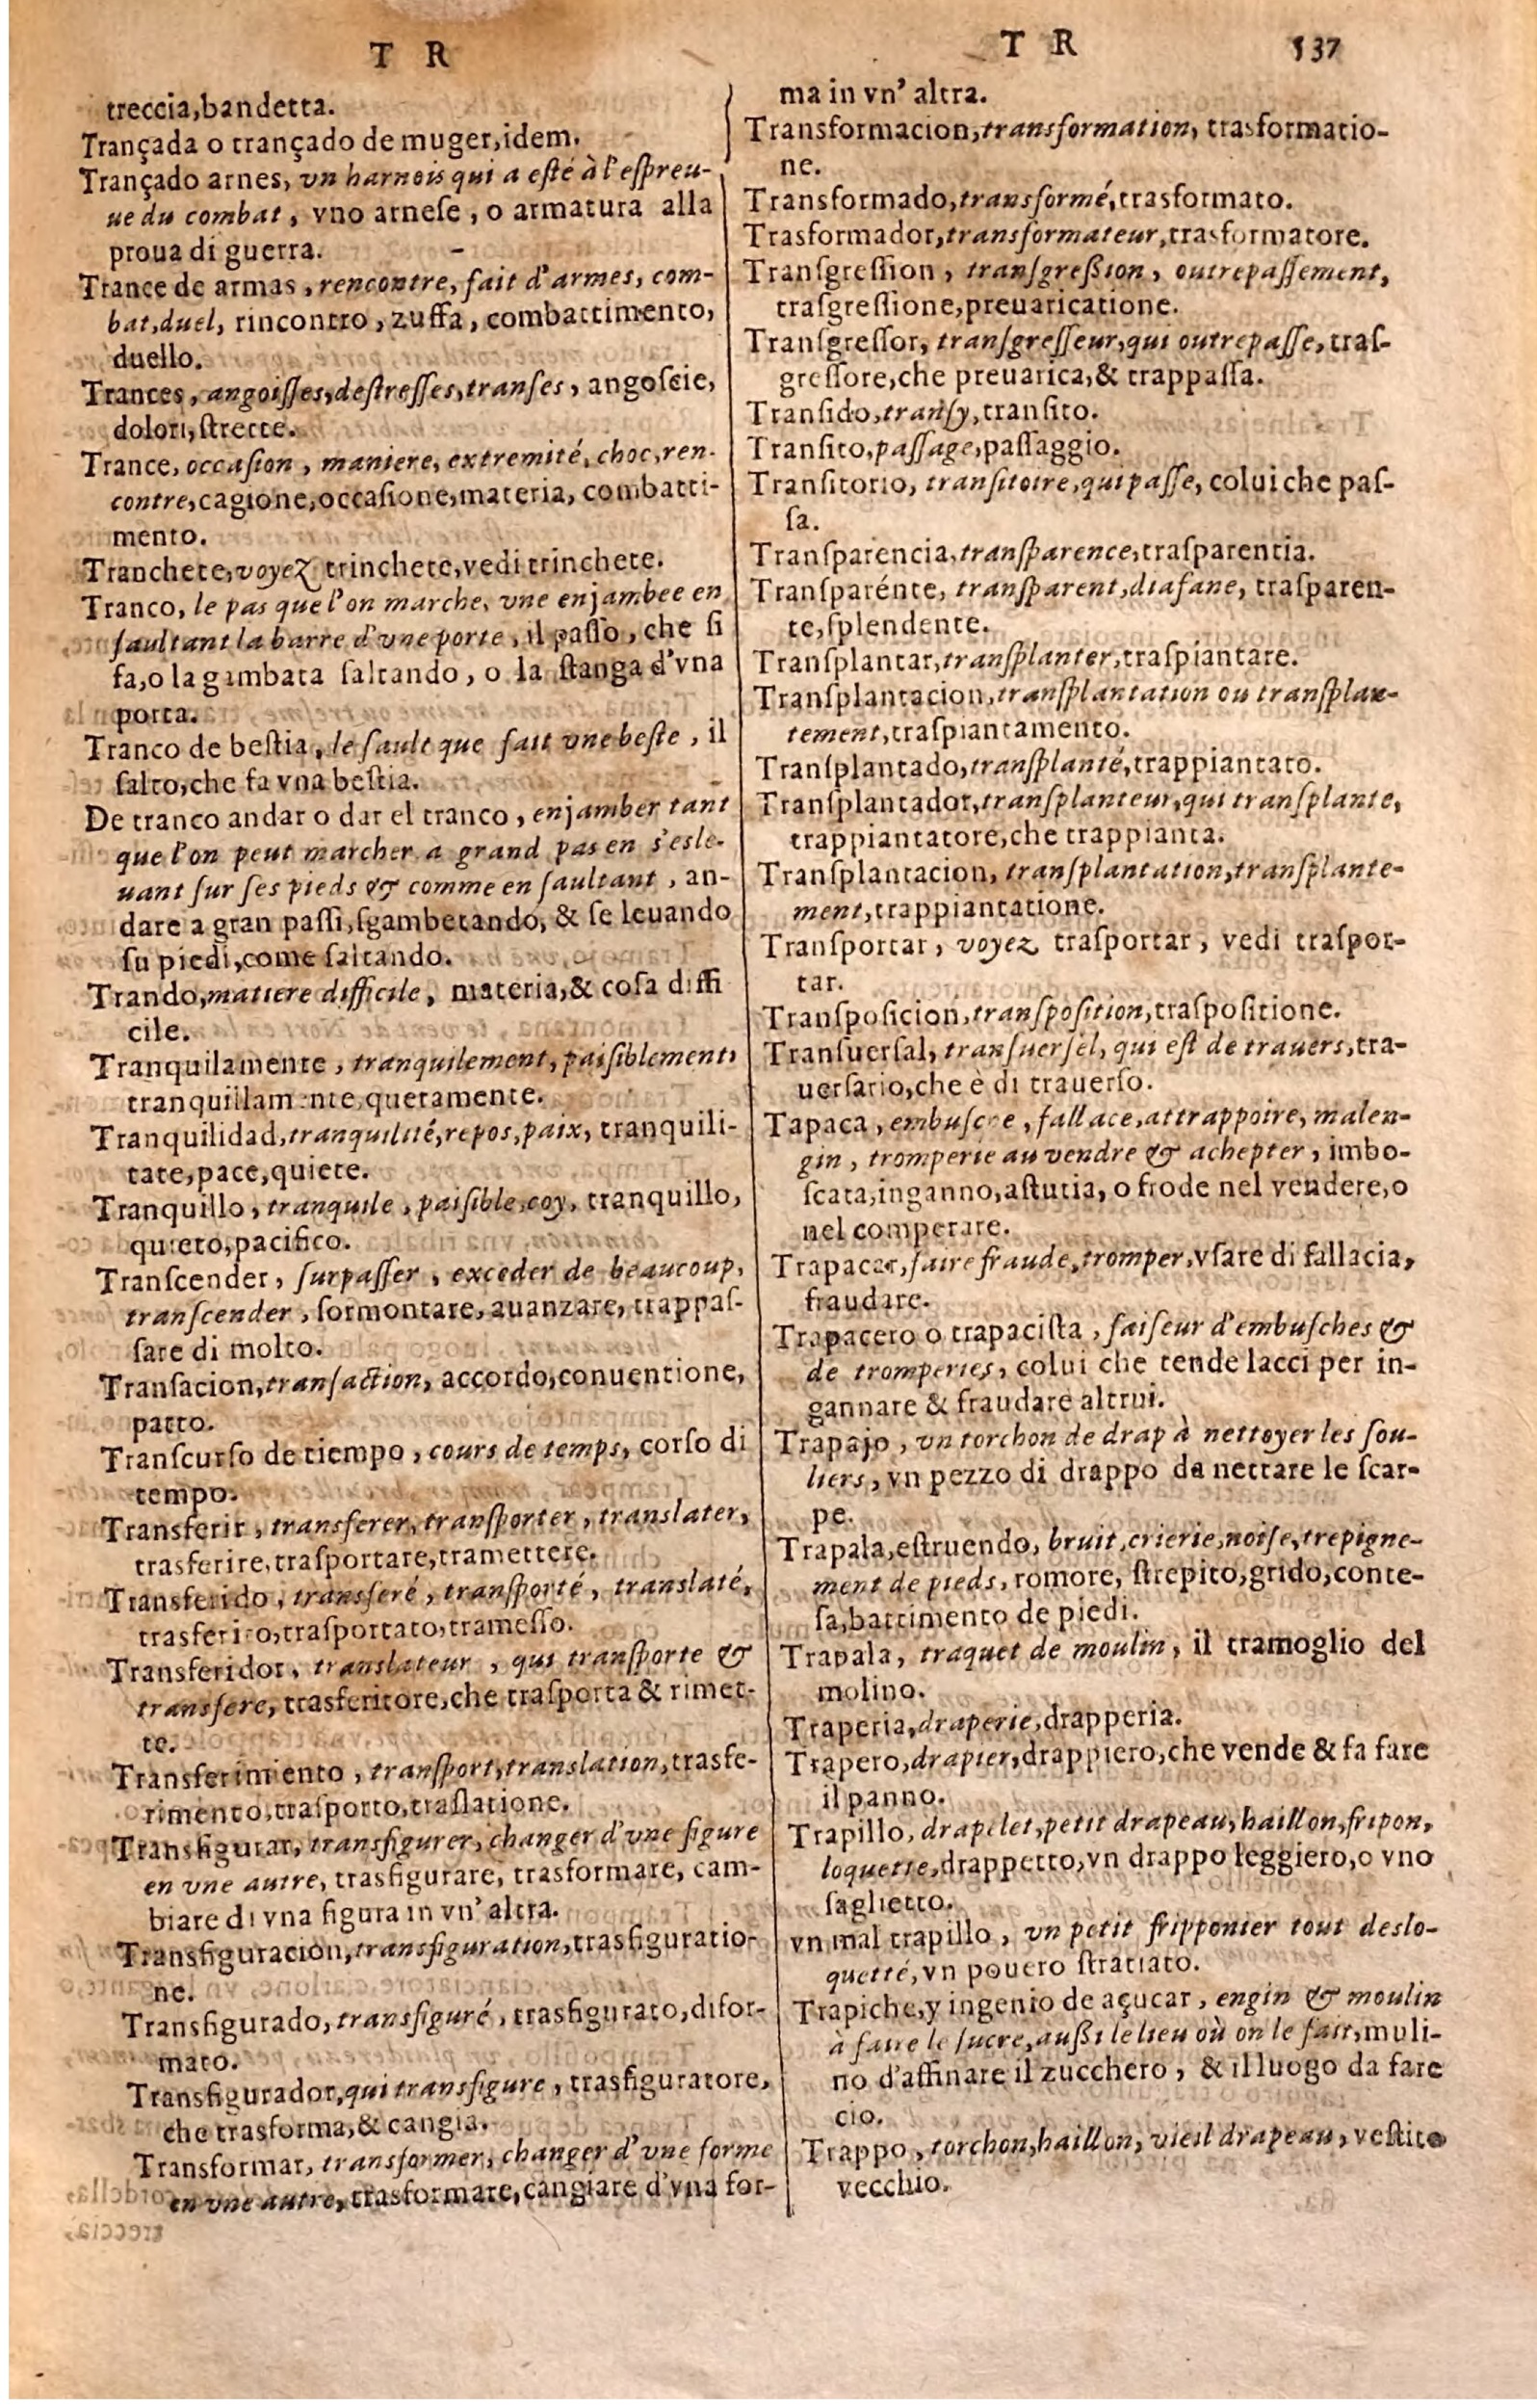 T R
treccia,bandetta.
Trançada o trançado de muger,idem.
Trançado arnes, vn harnois qui a esté à l'espreu-
ue du combat, vno arnese, o armatura alla
proua di guerra.
Trance de armas, rencontre, fait d'armes, com-
bat,duel, rincontro, zuffa, combattimento,
duello.
Trances, angoisses,destresses,transes, angoscie,
dolori,strette.
Trance, occasion, maniere, extremité, choc, ren-
contre,cagione,occasione,materia, combatti-
mento.
Tranchete,voyez trinchete,vedi trinchete.
Tranco, le pas que l'on marche, vne enjambee en
saultant la barre d'vne porte, il passo, che si
fa,o la gambata saltando, o la stanga d'vna
porta.
Tranco de bestia, le sault que fait vne beste, il
salto,che fa vna bestia.
De tranco andar o dar el tranco, enjamber tant
que l'on peut marcher a grand pas en s'esle-
uant sur ses pieds & comme en saultant, an-
dare a gran passi,sgambetando, & se leuando
su piedi,come saltando.
Trando,matiere difficile, materia,& cosa diffi
cile.
Tranquilamente, tranquilement, paisiblement,
tranquillamente,quetamente.
Tranquilidad,tranquilité,repos,paix, tranquili-
tate,pace,quiete.
Tranquillo, tranquile, paisible, coy, tranquillo,
quieto,pacifico.
Transcender, surpasser, exceder de beaucoup,
transcender, sormontare, auanzare, trappas-
sare di molto.
Transacion,transaction, accordo,conuentione,
patto.
Transcurso de tiempo, cours de temps, corso di
tempo.
Transferir, transferer, transporter, translater,
trasferire,trasportare,tramettere.
Transferido, transferé, transporté, translaté,
trasferito,trasportato,tramesso.
Transferidor, translateur, qui transporte &
transfere, trasferitore,che trasporta & rimet-
te.
Transferimiento, transport,translation,trasfe-
rimento,trasporto,traslatione.
Transfigurar, transfigurer, changer d'vne figure
en vne autre, trasfigurare, trasformare, cam-
biare di vna figura in vn' altra.
Transfiguracion,transfiguration,trasfiguratio-
ne.
Transfigurado,transfiguré, trasfigurato,difor-
mato.
Transfigurador,qui transfigure, trasfiguratore,
che trasforma,& cangia.
Transformar, transformer, changer d'vne forme
en vne autre,trasformare,cangiare d'vna for-
T R 537
ma in vn' altra.
Transformacion,transformation, trasformatio-
ne.
Transformado,transformé,trasformato.
Trasformador,transformateur,trasformatore.
Transgression, transgreßion, outrepassement,
trasgressione,preuaricatione.
Transgressor, transgresseur,qui outrepasse, tras-
gressore,che preuarica,& trappassa.
Transido,transy,transito.
Transito,passage,passaggio.
Transitorio, transitoire,qui passe, colui che pas-
sa.
Transparencia,transparence,trasparentia.
Transparénte, transparent,diafane, trasparen-
te,splendente.
Transplantar,transplanter,traspiantare.
Transplantacion,transplantation ou transplan-
tement,traspiantamento.
Transplantado,transplanté,trappiantato.
Transplantador,transplanteur,qui transplante,
trappiantatore,che trappianta.
Transplantacion, transplantation,transplante-
ment,trappiantatione.
Transportar, voyez trasportar, vedi traspor-
tar.
Transposicion,transposition,traspositione.
Transuersal, transuersel, qui est de trauers,tra-
uersario,che è di trauerso.
Tapaca, embuscee, fallace,attrappoire, malen-
gin, tromperie au vendre & achepter, imbo-
scata,inganno,astutia, o frode nel vendere,o
nel comperare.
Trapacar,faire fraude,tromper,vsare di fallacia,
fraudare.
Trapacero o trapacista, faiseur d'embusches &
de tromperies, colui che tende lacci per in-
gannare & fraudare altrui.
Trapajo, vn torchon de drap à nettoyer les sou-
liers, vn pezzo di drappo da nettare le scar-
pe.
Trapala,estruendo, bruit,crierie,noise,trepigne-
ment de pieds, romore, strepito,grido,conte-
sa,battimento de piedi.
Trapala, traquet de moulin, il tramoglio del
molino.
Traperia,draperie,drapperia.
Trapero,drapier,drappiero,che vende & fa fare
il panno.
Trapillo, drapelet,petit drapeau,haillon,fripon,
loquette,drappetto,vn drappo leggiero,o vno
saglietto.
vn mal trapillo, vn petit fripponier tout deslo-
quetté,vn pouero stratiato.
Trapiche,y ingenio de açucar, engin & moulin
à faire le sucre,außi le lieu où on le fait,muli-
no d'affinare il zucchero, & il luogo da fare
cio.
Trappo, torchon,haillon, vieil drapeau, vestito
vecchio.